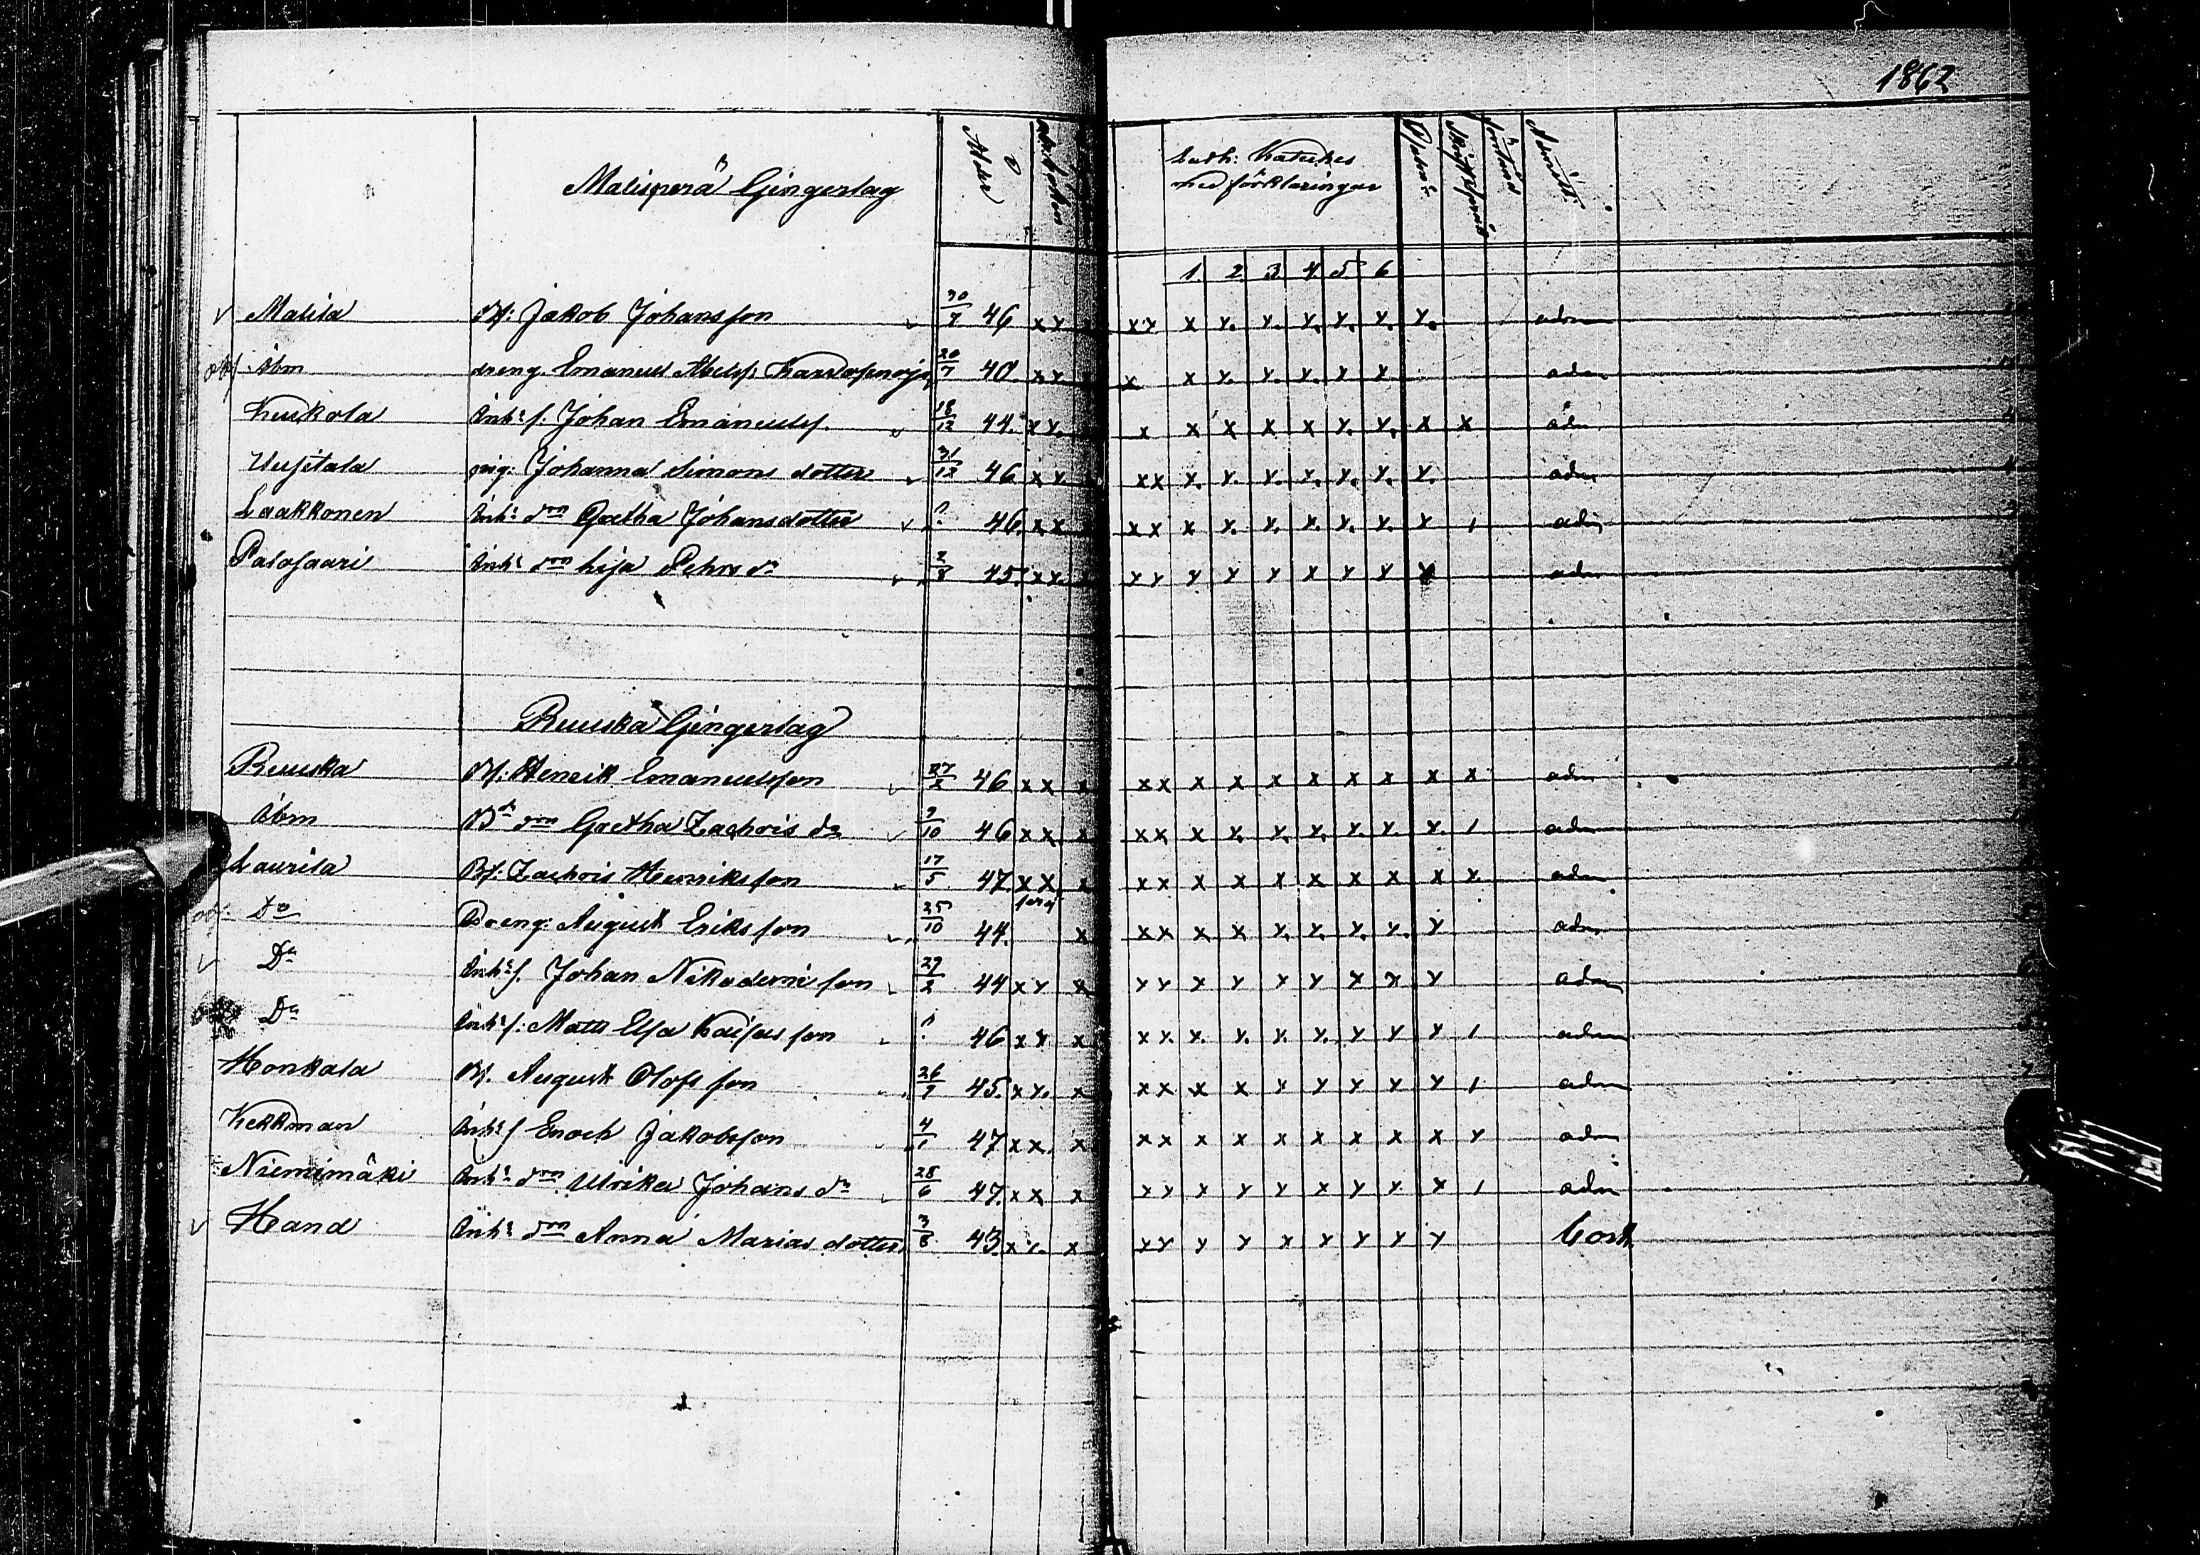 1862
Ålder
Luth: Kateches
med förklaringar
1. 2. 3. 4. 5. 6.
Malisperä Gingerlag
Malila Bs: Jakob Johansson 30/7 46 x x xx x x. x. x. x. x. x. adm
Ibm dreng Emanuel 20/7 40 x x. x x x. x. x. x x. adm
Inh:s s. Johan Emanuelss. 18/12 44. x x. x x x x x x. x. x x adm
pig: Johanna Simons dotter 31/12 46 x x. xx x. x. x. x. x. x. x. adm
Laakkonen Inh:s d:n Gretha Johansdotter ? 46. x x xx x x. x. x. x. x. x 1 adm
Palosaari Inh:s d:n Lisa Pehrs d:r 2/8 45. x x. xx x x x x x x x adm
Ruuska Gingerlag
Ruuska Bs: Henrik Emanuelsson 27/2 46 x x x xx x x x x x x x x adm
Ibm Bd d:n Gretha Zachris d:r 9/10 46 x x x xx x x. x. x. x. x. x. 1 adm
Laurila Bs: Zachris Henriksson 17/5 47 x x x xx x x x x x x x x. adm
D:o Dreng August Eriksson 25/10 44. x xx x x x. x. x. x. x adm
D:o Inh:s s. Johan Nikodemi son 29/2 44 x x x xx x x x x x x x adm
D:o Inh:s s: Matts Elsa son ? 46 x x x xx. x. x. x. x. x x x 1 adm
Honkala Bs. August Olofs son 26/7 45. x x. x xx x x x x x x x 1 adm
Kekkman Inh:s s Enoch Jakobsson 4/1 47 x x. x xx x x x x x x x x adm
Niemimäki Inh:s d:n Ulrika Johans d:r 28/6 47. x x x xx x x x x x x x 1 adm
Hand Inh:s d:n Anna Marias dotter 3/8 43. x x. x xx x x x x x x x